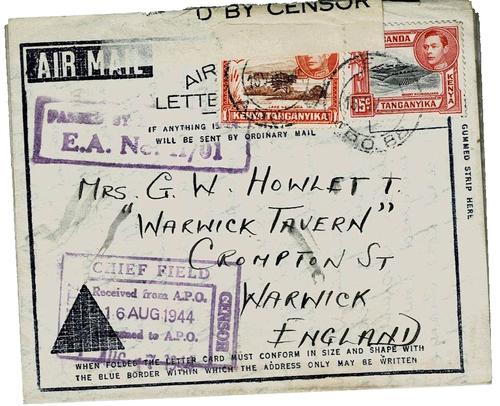 D BY CENSOR
AIR MAIL
AIR
LETTE
KENYA TANGANYIKA
UGANDA
KENYA
TANGANYIKA
PASSED BY
E.A. No.
IF ANYTHING IS
WILL BE SENT BY ORDINARY MAIL
GUMMED STRIP HERE
MRS. G. W. HOWLETT.
"WARWICK TAVERN"
CROMPTON ST
WARWICK
ENGLAND
CHIEF FIELD
CENSOR
Received from A.P.O.
16 AUG 1944
to A.P.O.
WHEN FOLDED THE LETTER CARD MUST CONFORM IN SIZE AND SHAPE WITH
THE BLUE BORDER WITHIN WHICH THE ADDRESS ONLY MAY BE WRITTEN